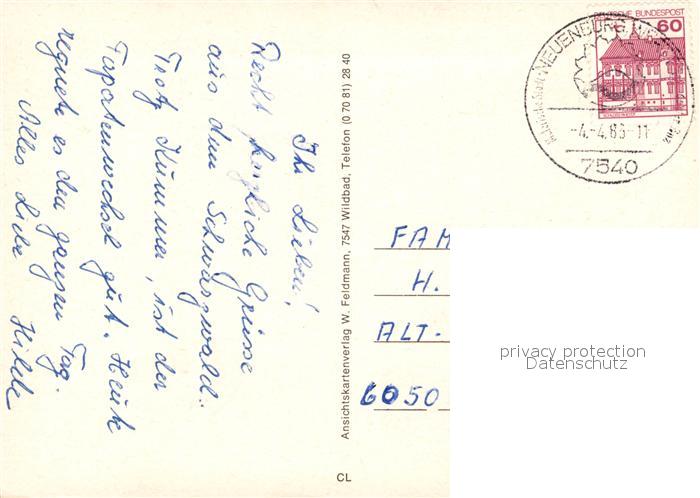 Ihr Lieben!
Recht herzliche Grüsse
aus dem Schwarzwald.
Trotz Kummer, ist der
Tapetenwechsel gut. Heute
regnete es den ganzen Tag.
Alles Liebe Hilde
Ansichtskartenverlag W. Feldmann, 7547 Wildbad, Telefon (0 70 81) 28 40
CL
DEUTSCHE BUNDESPOST
60
NEUENBURG
-4.-4.83-11
7540
FAM
H.
ALT-
6050
privacy protection
Datenschutz